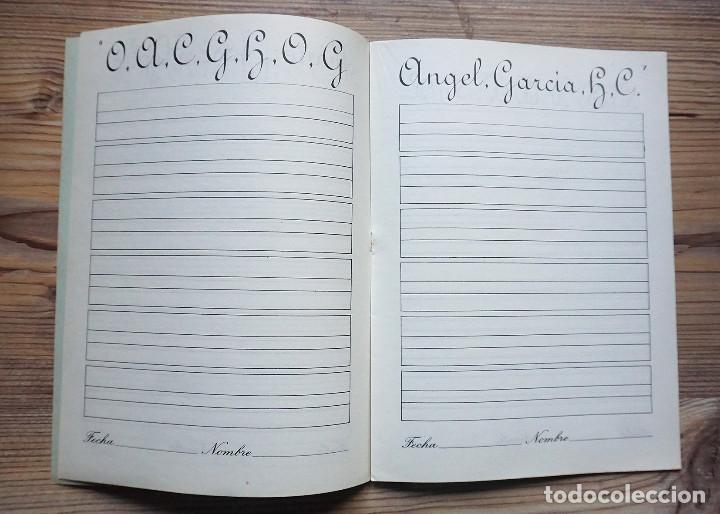 "O, A, C, G, H, O, G
Fecha Nombre
Angel, Garcia, H, C."
Fecha Nombre
todocoleccion